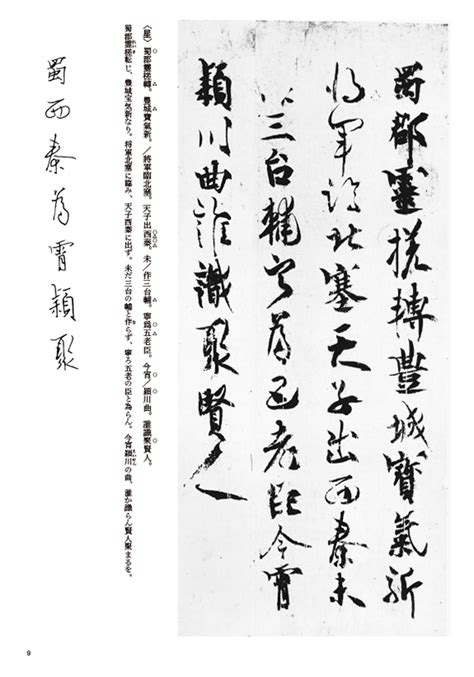 蜀郡靈槎轉豐城寶氣新
將軍臨北塞天子出西秦未
作三台輔寧為五老臣今宵
潁川曲誰識聚賢人
〈星〉蜀郡靈槎轉。豐城寶氣新。／將軍臨北塞。天子出西秦。未／作三台輔。寧爲五老臣。今宵／潁川曲。誰識聚賢人。
蜀郡霊槎転じ、豊城宝気新なり。将軍北塞に臨み、天子西秦に出ず。未だ三台の輔と作らず、寧ろ五老の臣と為らん。今宵潁川の曲、誰か識らん賢人聚まるを。
蜀西秦為宵潁聚
9